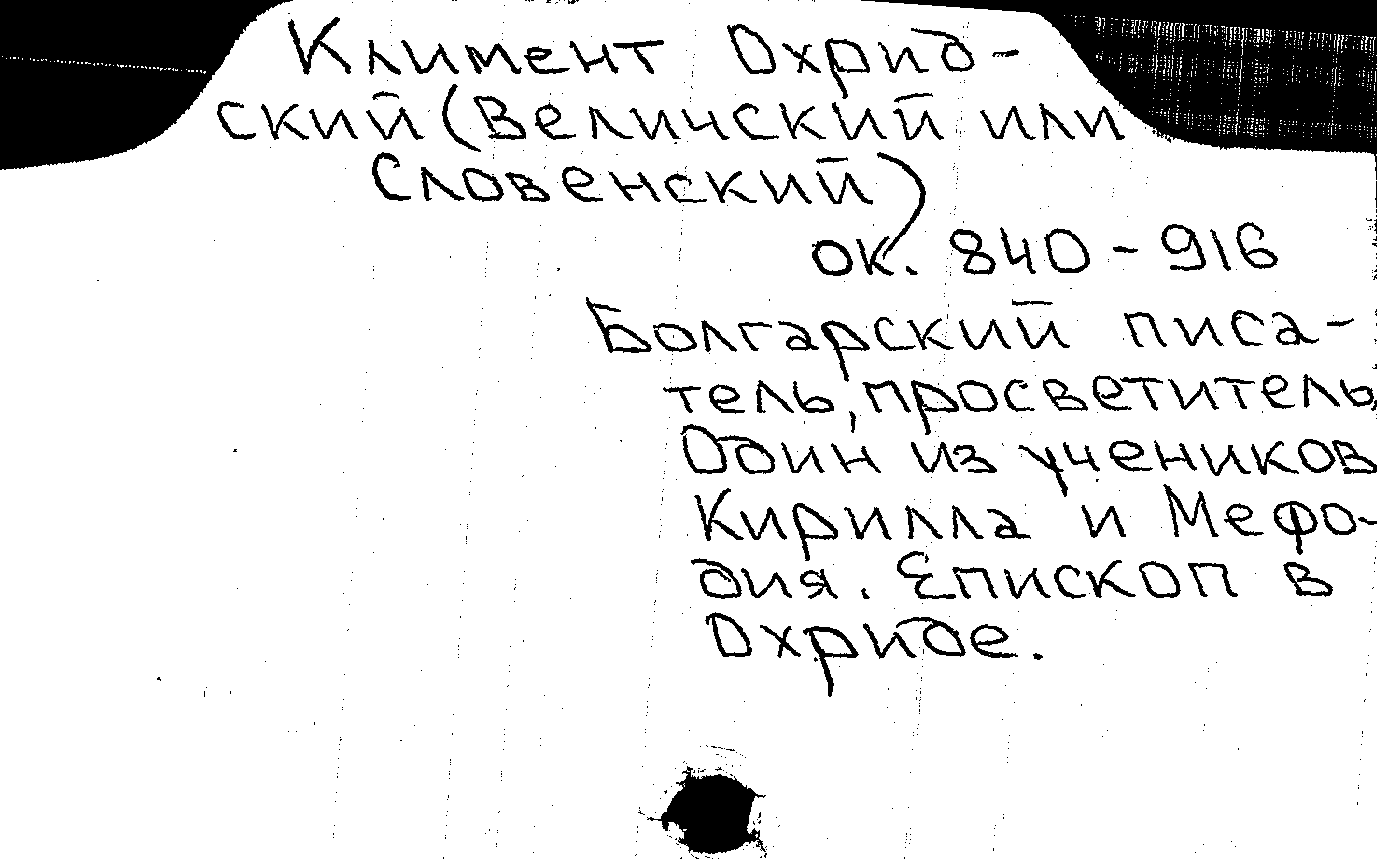 Климент Охрид-
ский (Величский или
Словенский)
ок. 840 - 916
Болгарский писа-
тель, просветитель,
Один из учеников
Кирилла и Мефо-
дия. Епископ в
Охриде.